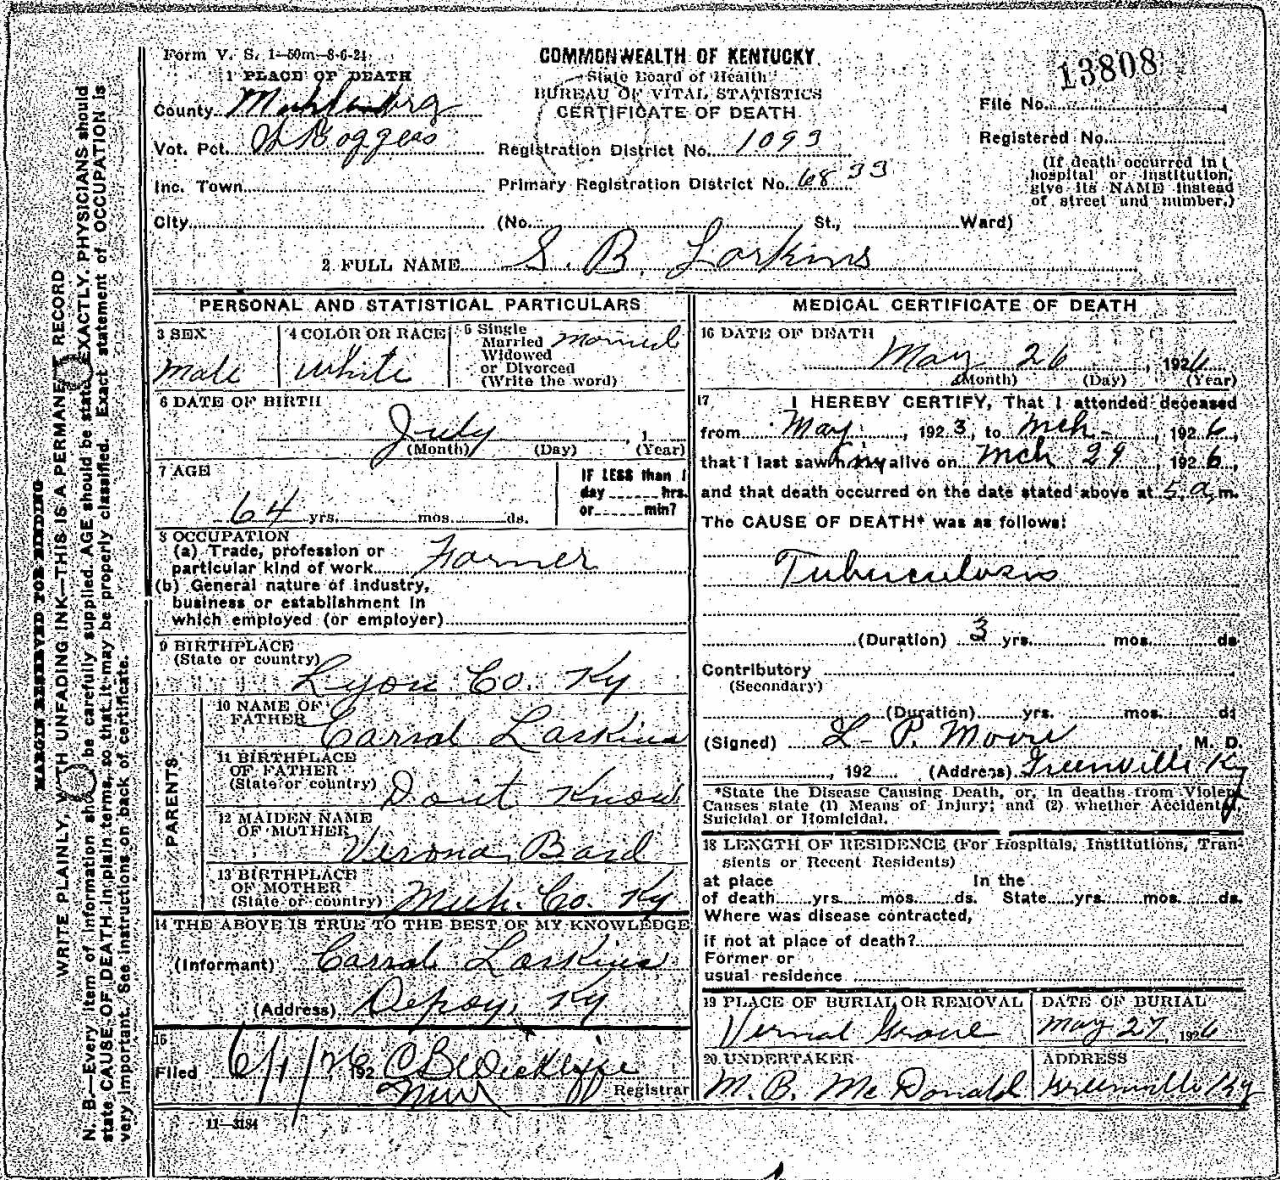 Form V. S. 1—50m—8-6-21
COMMONWEALTH OF KENTUCKY
State Board of Health
BUREAU OF VITAL STATISTICS
CERTIFICATE OF DEATH
13808
File No.
Registered No.
(If death occurred in
hospital or institution,
give its NAME instead
of street and number.)
1 PLACE OF DEATH
County Muhlenberg
Vot. Pct.
Registration District No. 1093
Inc. Town
Primary Registration District No. 6833
City (No. St., Ward)
2 FULL NAME S. B. Larkins
PERSONAL AND STATISTICAL PARTICULARS
3 SEX Male
4 COLOR OR RACE White
5 Single
Married
Widowed
or Divorced
(Write the word) Married
6 DATE OF BIRTH
July , 1
(Month) (Day) (Year)
7 AGE
64 yrs. mos. ds.
IF LESS than 1
day hrs.
or min?
8 OCCUPATION
(a) Trade, profession or
particular kind of work Farmer
(b) General nature of industry,
business or establishment in
which employed (or employer)
9 BIRTHPLACE
(State or country) Lyon Co. Ky
PARENTS
10 NAME OF
FATHER Carrol Larkins
11 BIRTHPLACE
OF FATHER
(State or country) Dont Know
12 MAIDEN NAME
OF MOTHER Verona Bard
13 BIRTHPLACE
OF MOTHER
(State or country) Muh. Co. Ky
14 THE ABOVE IS TRUE TO THE BEST OF MY KNOWLEDGE
(Informant) Carrol Larkins
(Address) Depoy, Ky
15
Filed 6/1/26 192
Registrar
11—3184
MEDICAL CERTIFICATE OF DEATH
16 DATE OF DEATH
May 26, 1926
(Month) (Day) (Year)
17 I HEREBY CERTIFY, That I attended deceased
from May, 1923, to Mch, 1926,
that I last saw him alive on Mch 29, 1926,
and that death occurred on the date stated above at 5 a. m.
The CAUSE OF DEATH* was as follows:
Tuberculosis
(Duration) 3 yrs. mos. ds
Contributory
(Secondary)
(Duration) yrs. mos. ds
(Signed) L. P. Moore, M. D.
, 192 (Address) Greenville Ky
*State the Disease Causing Death, or, in deaths from Violent
Causes state (1) Means of Injury; and (2) whether Accidental,
Suicidal or Homicidal.
18 LENGTH OF RESIDENCE (For Hospitals, Institutions, Tran-
sients or Recent Residents)
at place In the
of death yrs. mos. ds. State yrs. mos. ds.
Where was disease contracted,
if not at place of death?
Former or
usual residence
19 PLACE OF BURIAL OR REMOVAL
Vernal Grove
DATE OF BURIAL
May 27, 1926
20 UNDERTAKER
M. B. McDonald
ADDRESS
Greenville Ky
MARGIN RESERVED FOR BINDING
WRITE PLAINLY, WITH UNFADING INK—THIS IS A PERMANENT RECORD
N. B.—Every item of information should be carefully supplied. AGE should be stated EXACTLY. PHYSICIANS should
state CAUSE OF DEATH in plain terms, so that it may be properly classified. Exact statement of OCCUPATION is
very important. See instructions on back of certificate.